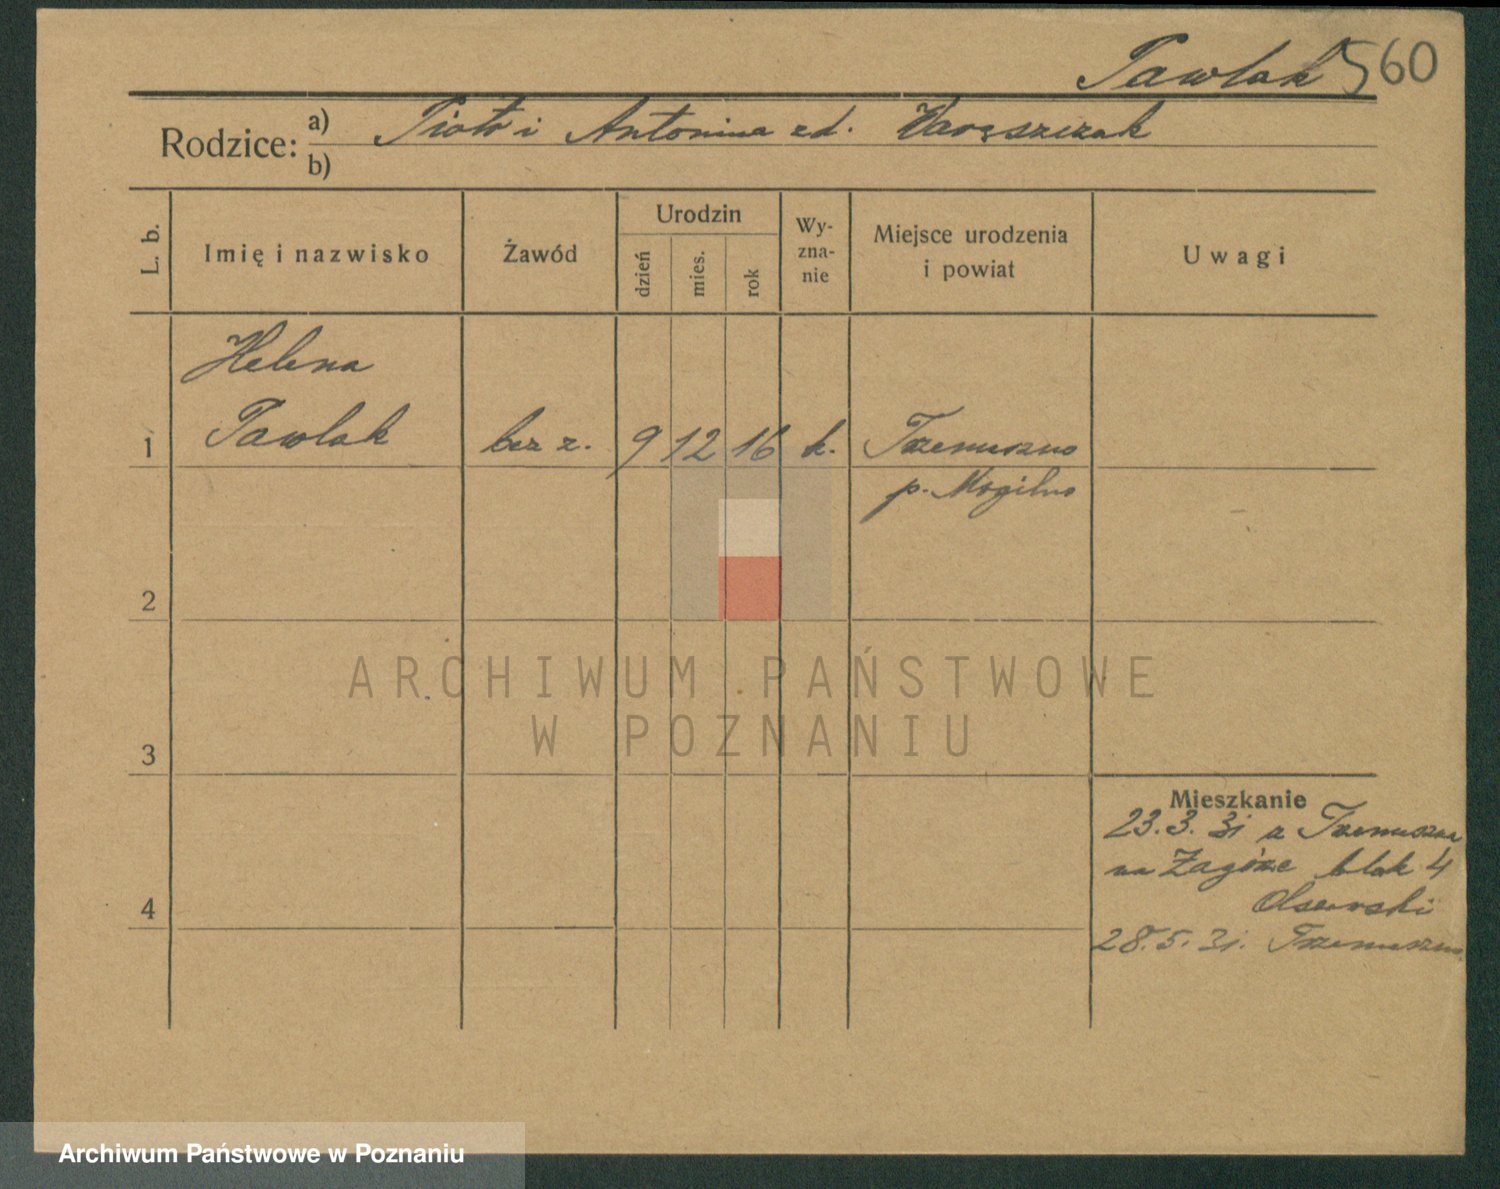 Pawlak 560
Rodzice: a) Piotr i Antonina zd.
b)
L. b.
Imię i nazwisko
Żawód
Urodzin
dzień
mies.
rok
Wy-
zna-
nie
Miejsce urodzenia
i powiat
Uwagi
Helena
1 Pawlak bez z. 9 12 16 k. Trzemeszno
p. Mogilno
2
ARCHIWUM PAŃSTWOWE
W POZNANIU
3
Mieszkanie
23.3.31 z Trzemeszna
na Zagórze blok 4
4
28.5.31. Trzemeszno
Archiwum Państwowe w Poznaniu